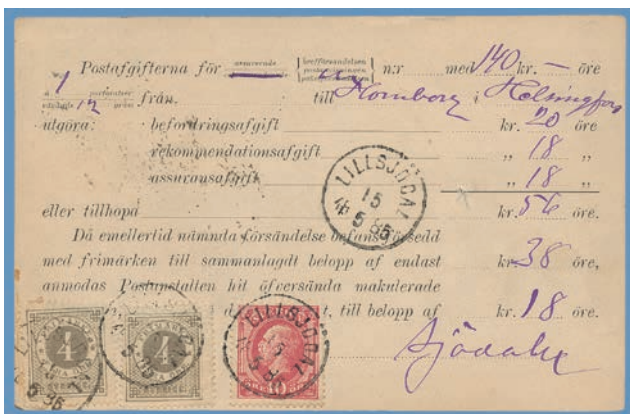 Postafgifterna för assurerade brefförsändelsen n:r med 140 kr. – öre
à 1 vägande 12 gram från till Homborg i Helsingfors
utgöra: befordringsafgift kr. 20 öre
rekommendationsafgift „ 18 „
assuransafgift „ 18 „
eller tillhopa kr. 56 öre.
Då emellertid nämnda försändelse befans försedd
med frimärken till sammanlagdt belopp af endast kr. 38 öre,
anmodas Postanstalten hit öfversända makulerade
till belopp af kr. 18 öre.
LILLSJÖDAL
15
5 86
4
4
LILLSJÖDAL
15
10